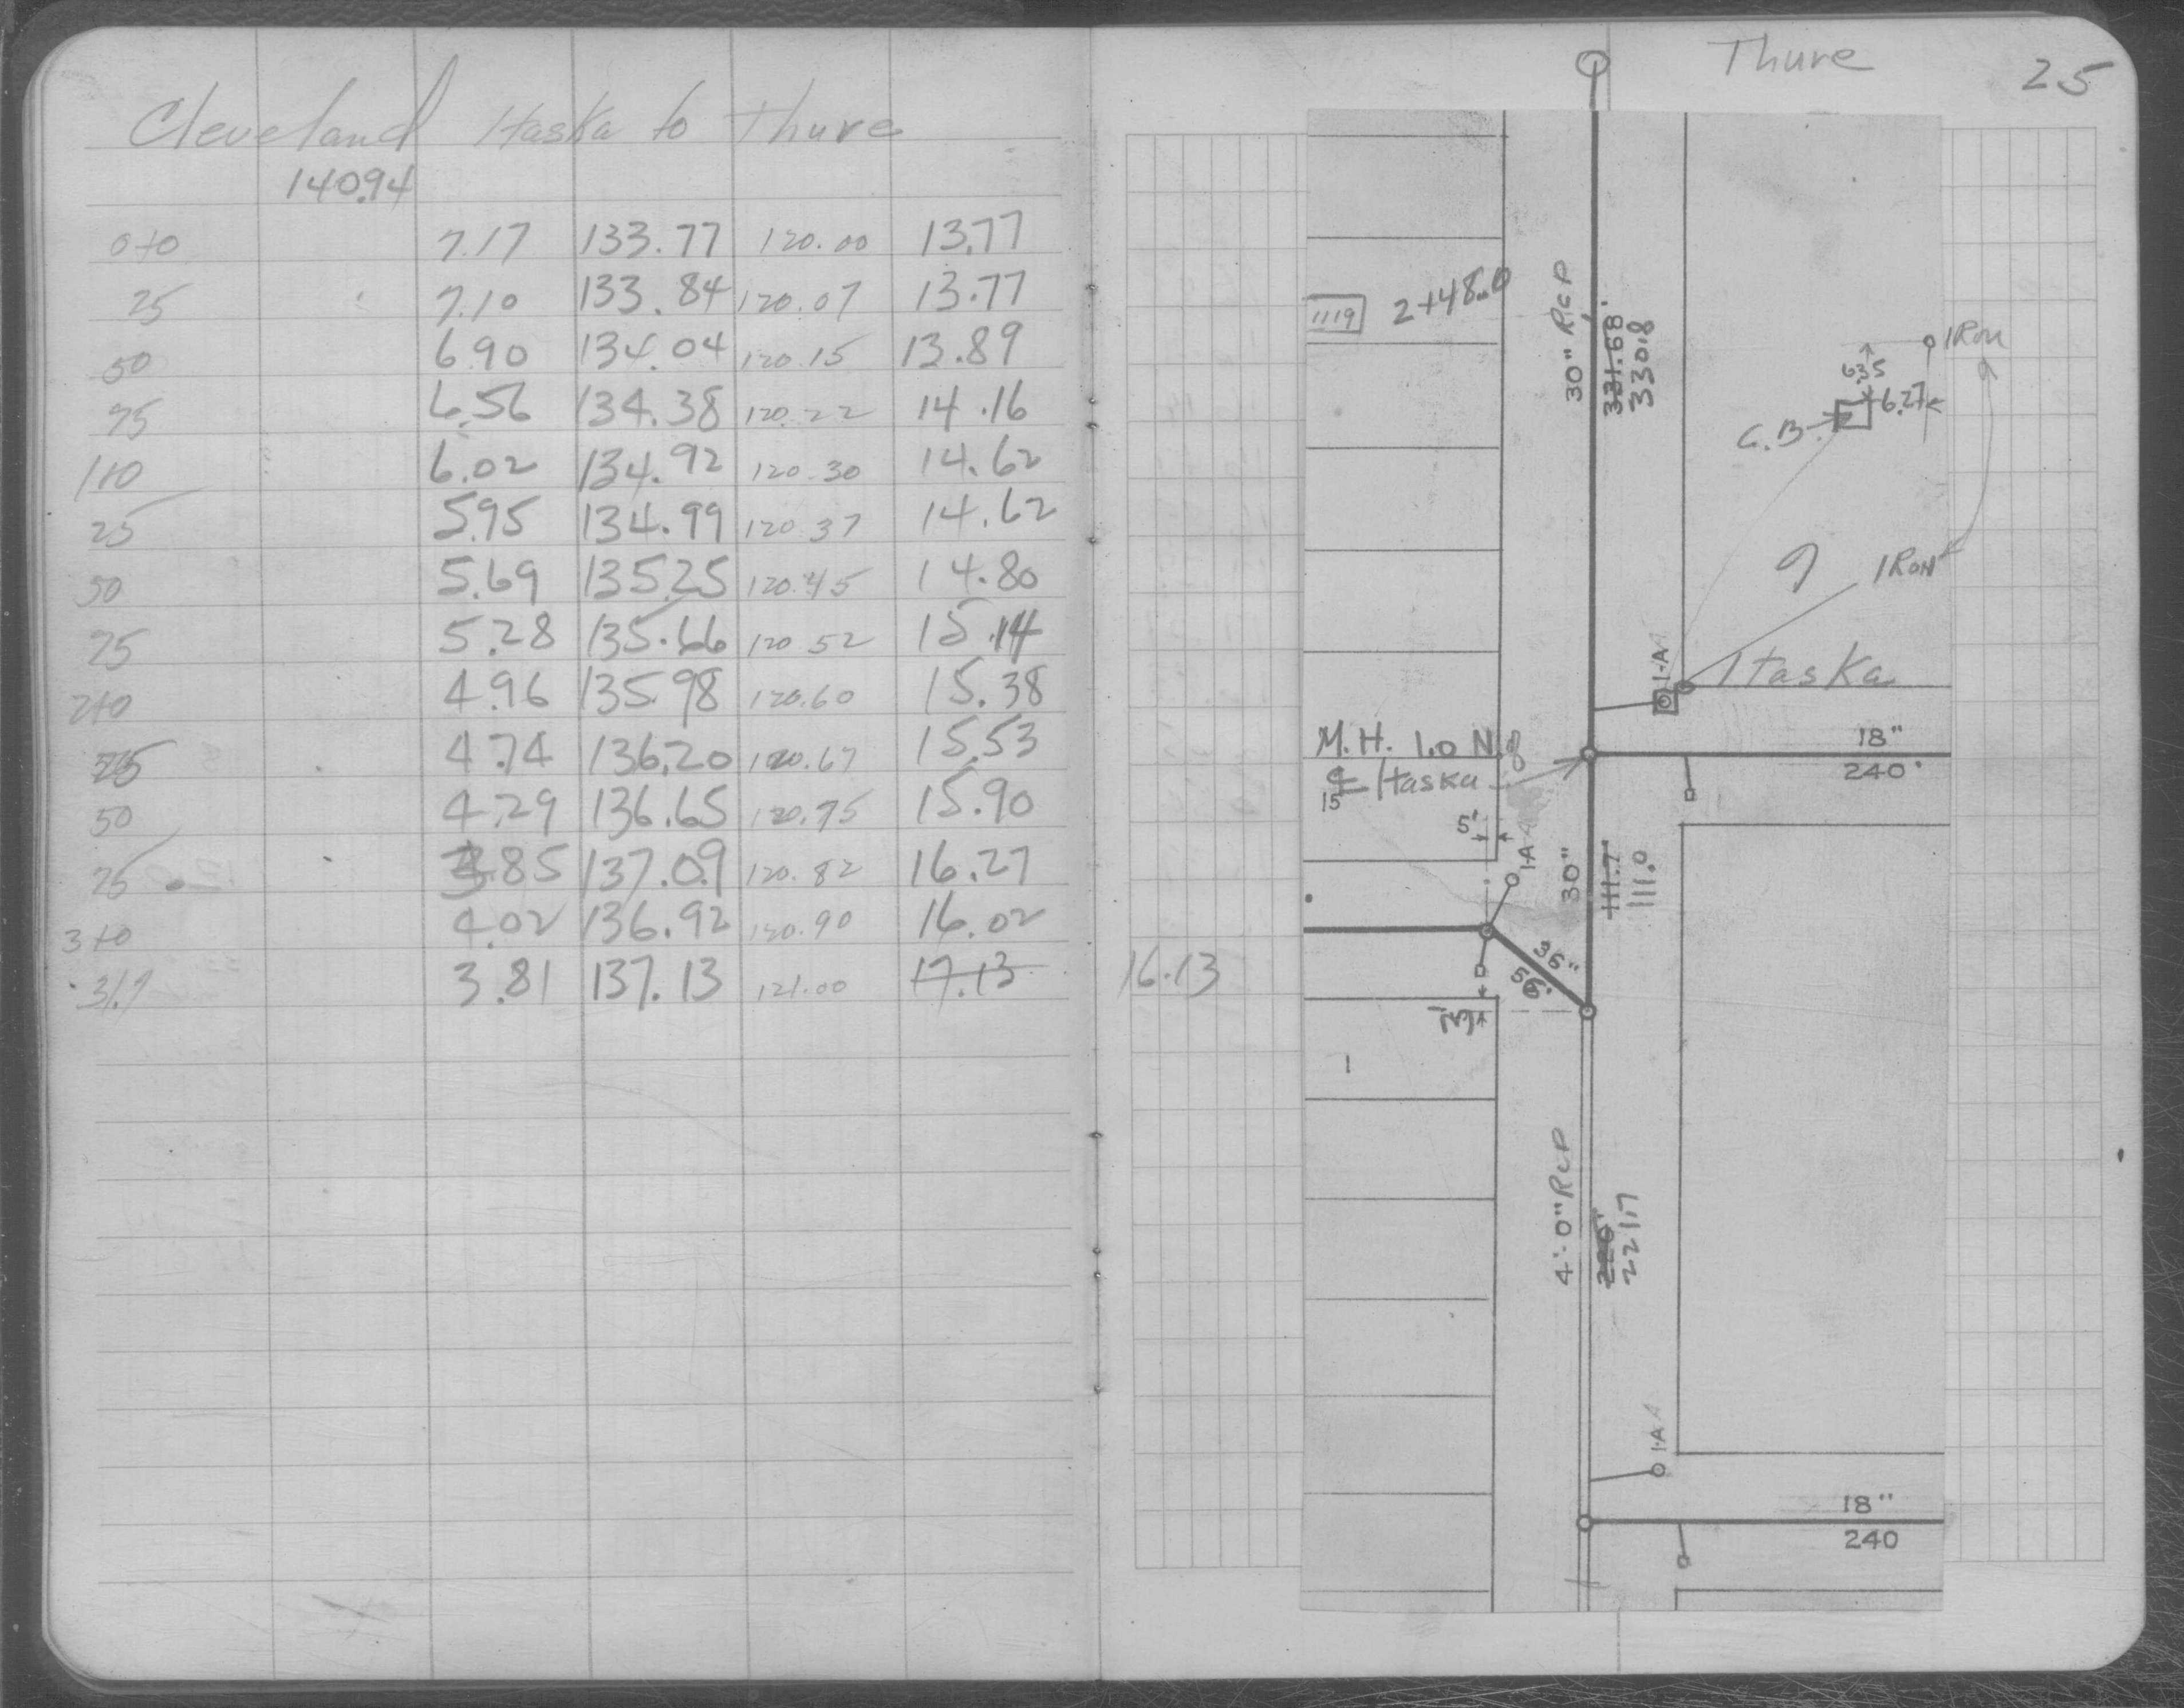 Cleveland Itaska to Thure
140.94
0+0 7.17 133.77 120.00 13.77
25 7.10 133.84 120.07 13.77
50 6.90 134.04 120.15 13.89
75 6.56 134.38 120.22 14.16
1+0 6.02 134.92 120.30 14.62
25 5.95 134.99 120.37 14.62
50 5.69 135.25 120.45 14.80
75 5.28 135.66 120.52 15.14
2+0 4.96 135.98 120.60 15.38
25 4.74 136.20 120.67 15.53
50 4.29 136.65 120.75 15.90
75 3.85 137.09 120.82 16.27
3+0 4.02 136.92 120.90 16.02
31.7 3.81 137.13 121.00 17.13 16.13
Thure
25
1119 2+48.0
30" RCP
331.68'
330.8
IRON
6.35
6.27
C.B.
IRON
1-A
Itaska
M.H. 1.0 N. of
℄ Itaska
15
18"
240'
5'
1-A
30"
111.7'
111.0
36"
56'
1
4'-0" RCP
220'
221.7
1-A
18"
240